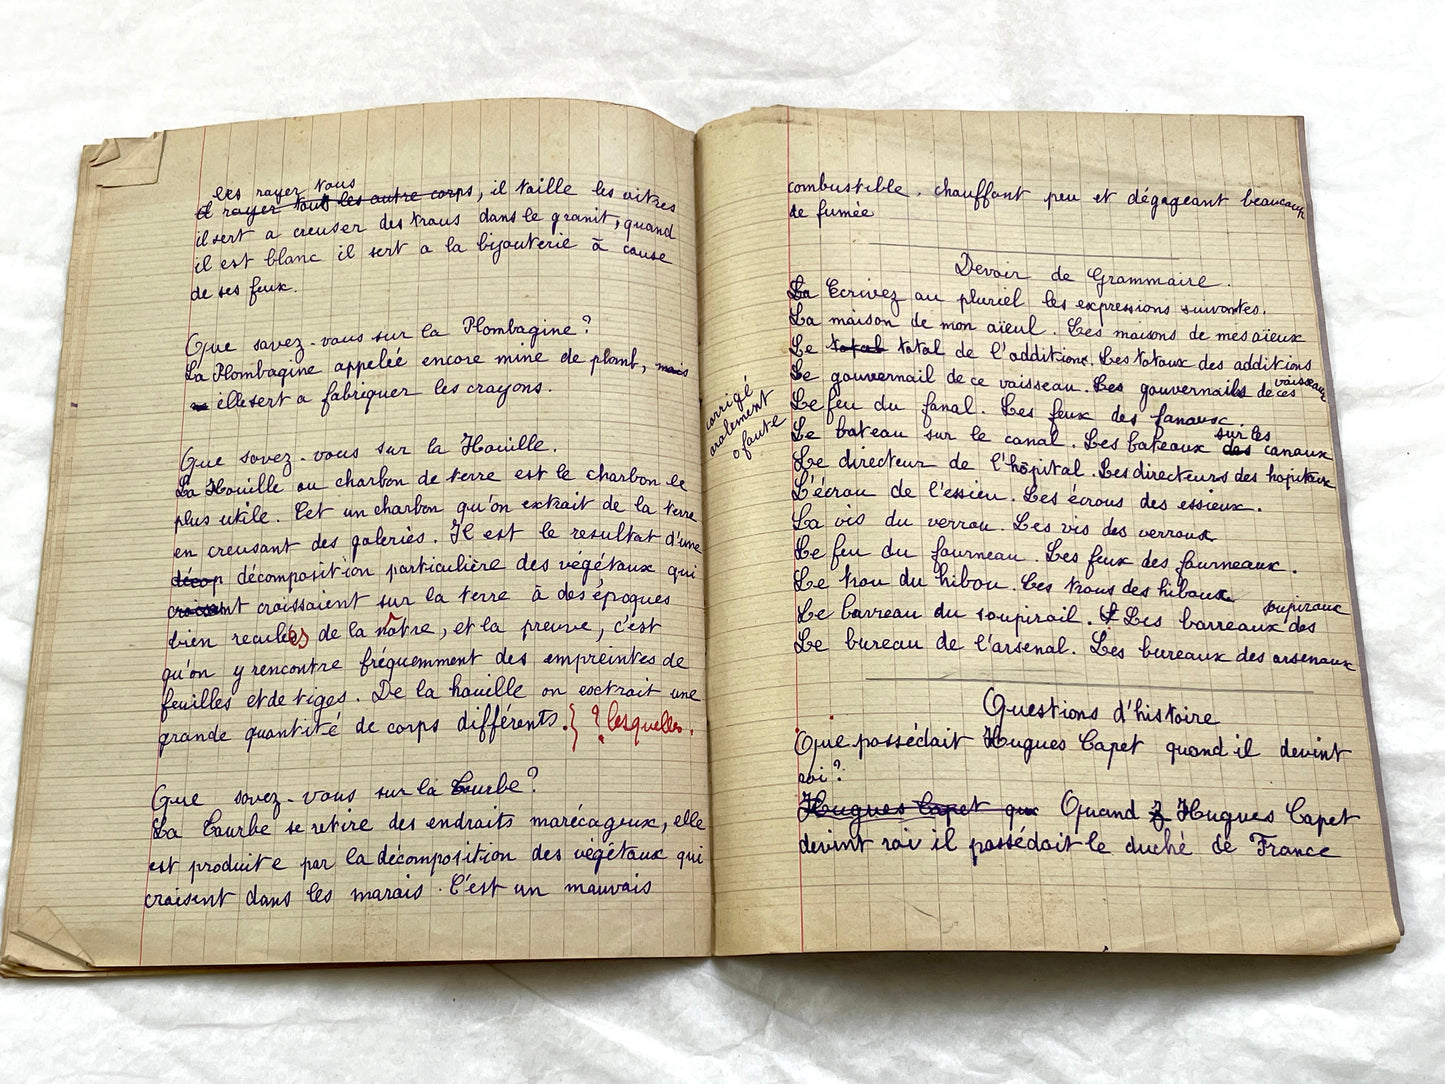 les rayer tous
il rayer tout les autre corps, il taille les vitres
il sert a creuser des trous dans le granit, quand
il est blanc il sert a la bijouterie à cause
de ses feux.
Que savez-vous sur la Plombagine?
La Plombagine appeleé encore mine de plomb, mais
elle sert a fabriquer les crayons.
Que savez-vous sur la Houille.
La Houille ou charbon de terre est le charbon le
plus utile. Cet un charbon qu'on extrait de la terre
en creusant des galeriès. Il est le resultat d'une
décop décomposition particulière des végétaux qui
croissant croissaient sur la terre à des époques
bien reculées de la nôtre, et la preuve, c'est
qu'on y rencontre fréquemment des empreintes de
feuilles et de tiges. De la houille on extrait une
grande quantité de corps différents. } ? lesquelles.
Que savez-vous sur la Tourbe?
La Tourbe se retire des endraits marécageux, elle
est produite par la décomposition des végétaux qui
craisent dans les marais. C'est un mauvais
corrigé
oralement
0 faute
combustible. chauffant peu et dégageant beaucoup
de fumée
Devoir de Grammaire.
La Ecrivez au pluriel les expressions suivantes.
La maison de mon aïeul. Les maisons de mes aïeux
Le total total de l'addition. Les totaux des additions
Le gouvernail de ce vaisseau. Les gouvernails de ces vaisseaux
Le feu du fanal. Les feux des fanaux
Le bateau sur le canal. Les bateaux des sur les canaux
Le directeur de l'hôpital. Les directeurs des hopitaux
L'écrou de l'essieu. Les écrous des essieux.
La vis du verrou. Les vis des verroux
Le feu du fourneau. Les feux des fourneaux.
Le trou du hibou. Les trous des hiboux
Le barreau du soupirail. Les barreaux des soupiraux
Le bureau de l'arsenal. Les bureaux des arsenaux
Questions d'histoire
Que possédait Hugues Capet quand il devint
roi?
Hugues Capet que Quand Hugues Capet
devint roi il possédait le duché de France